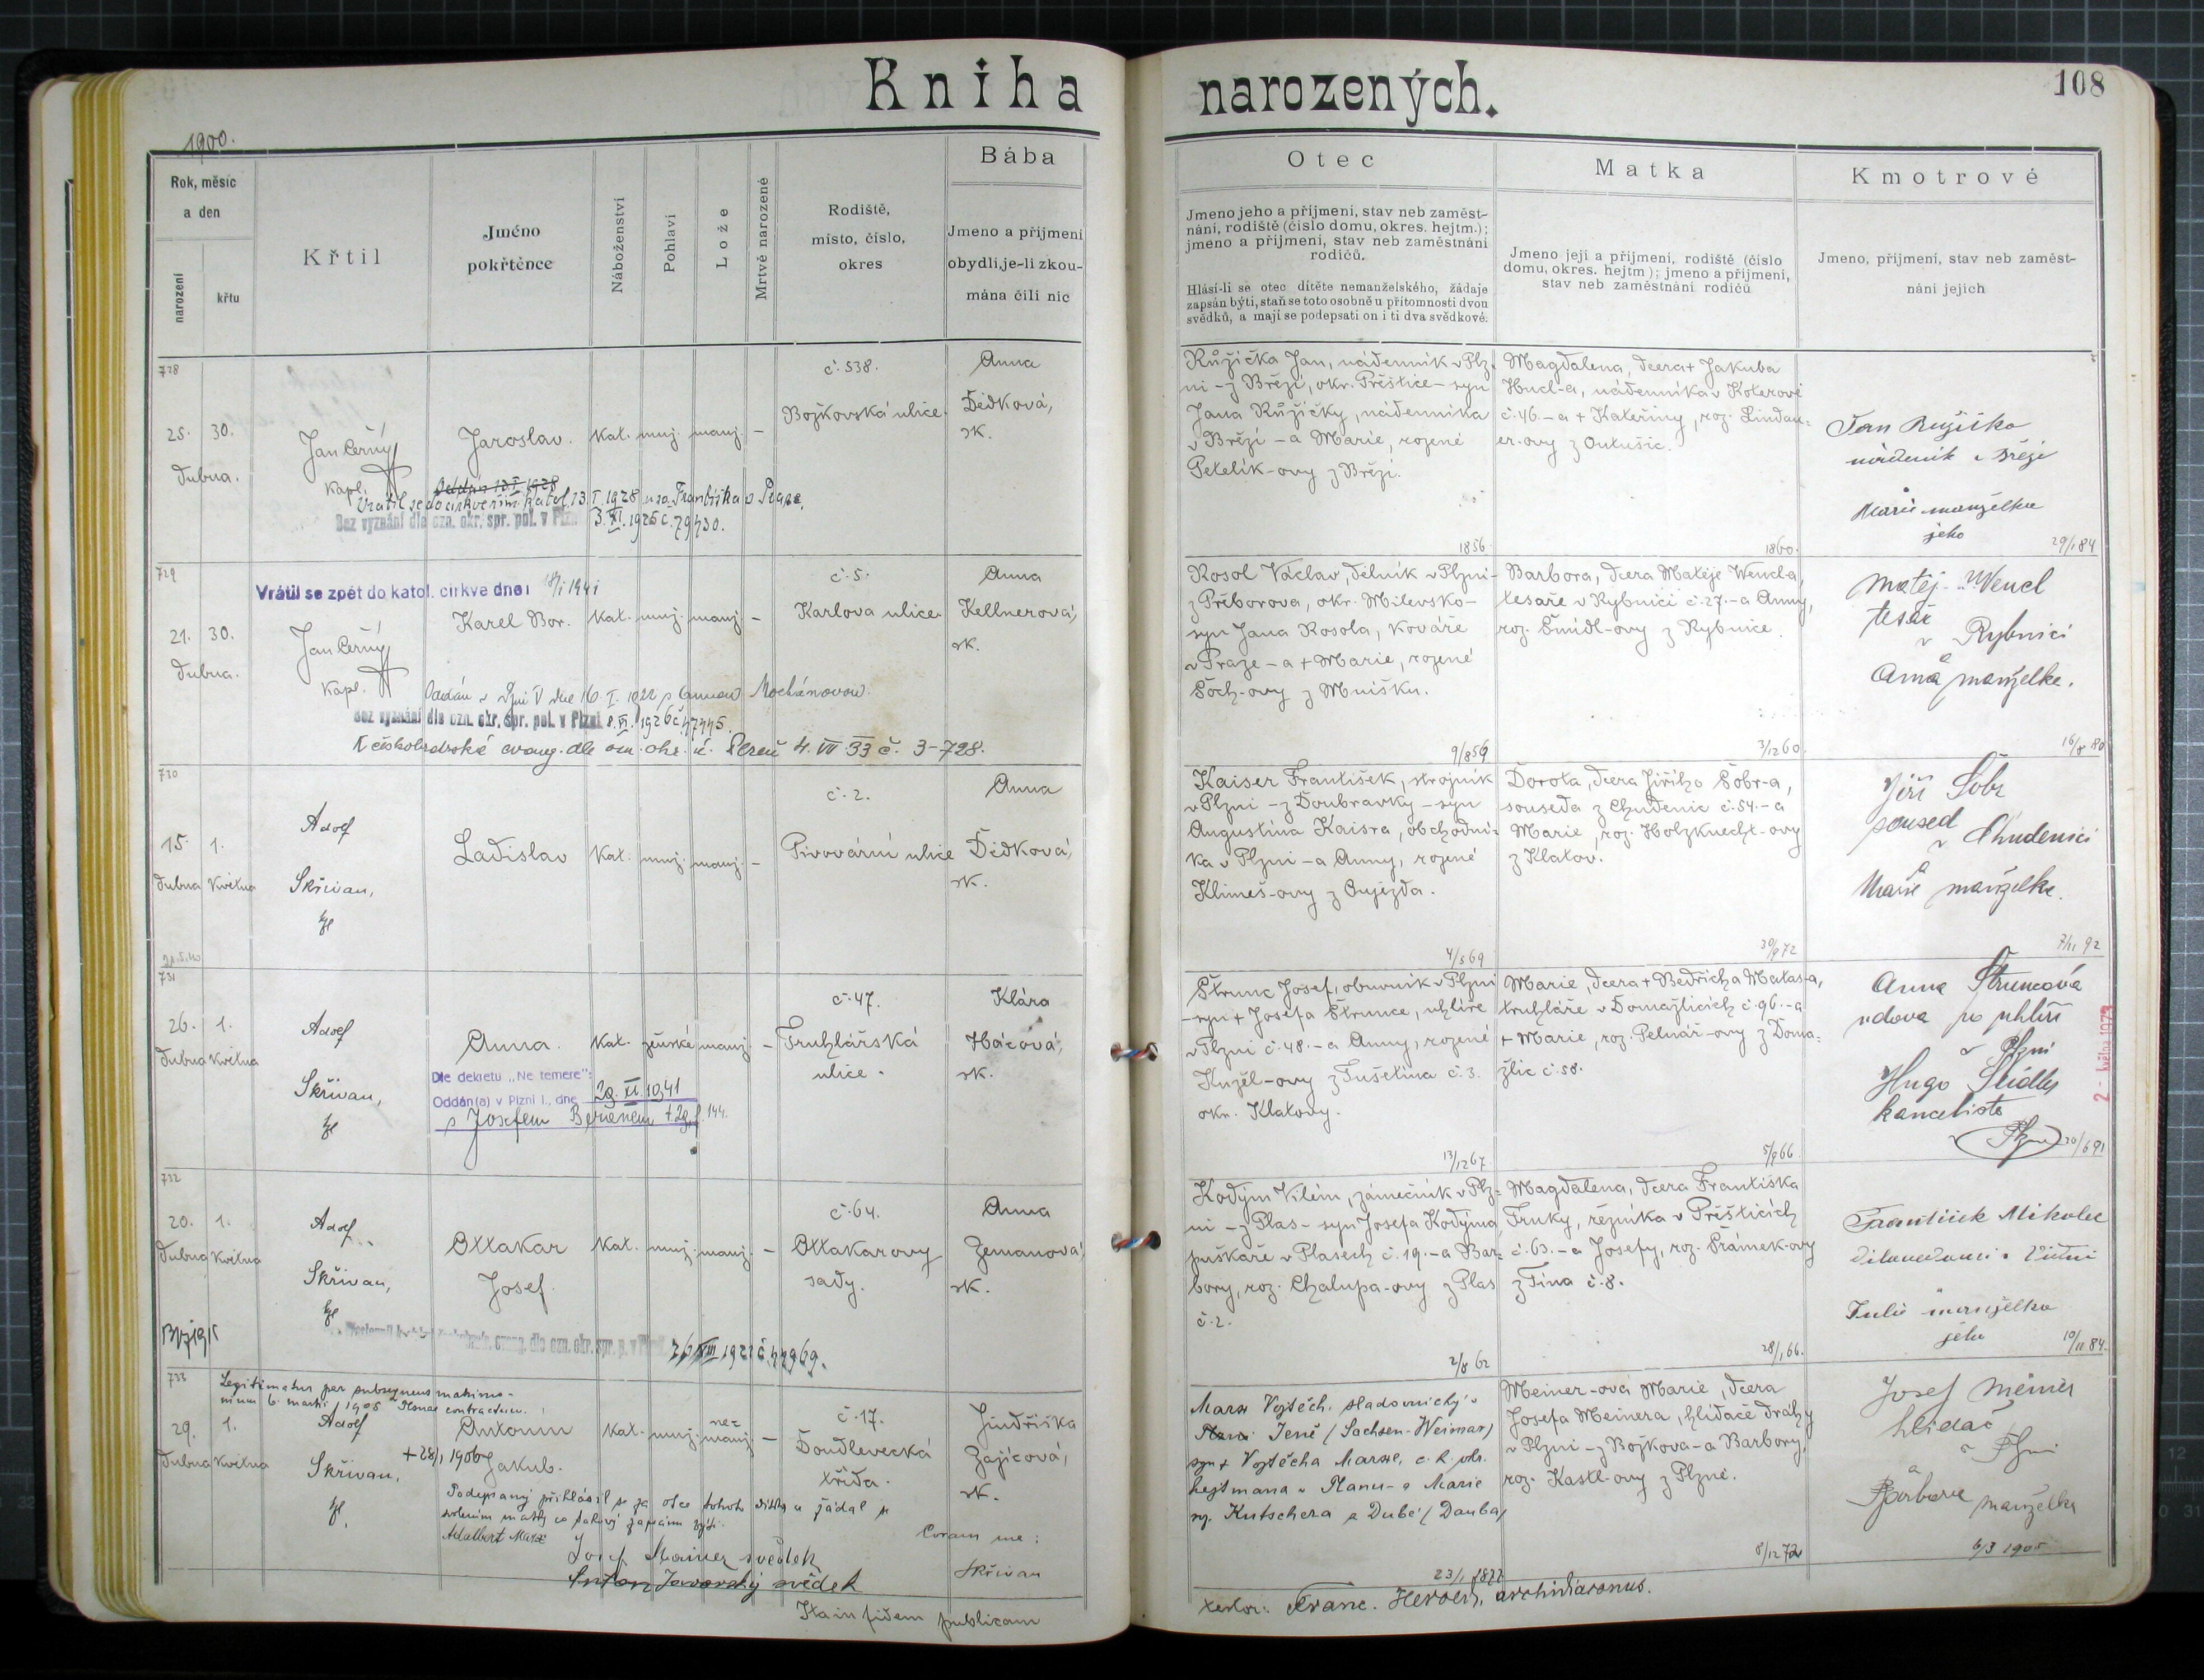 Kniha narozených.
108
1900.
Rok, měsíc
a den
narození
křtu
Křtil
Jméno
pokřtěnce
Náboženství
Pohlaví
Lože
Mrtvě narozené
Rodiště,
místo, číslo,
okres
Bába
Jmeno a příjmení
obydlí, je-li zkou-
mána čili nic
Otec
Jmeno jeho a příjmení, stav neb zaměst-
nání, rodiště (číslo domu, okres. hejtm.);
jmeno a příjmení, stav neb zaměstnání
rodičů.
Hlásí-li se otec dítěte nemanželského, žádaje
zapsán býti, staň se toto osobně u přítomnosti dvou
svědků, a mají se podepsati on i ti dva svědkové.
Matka
Jmeno její a příjmení, rodiště (číslo
domu, okres. hejtm); jmeno a příjmení,
stav neb zaměstnání rodičů
Kmotrové
Jmeno, příjmení, stav neb zaměst-
nání jejich
728
25. 30.
dubna.
Jan Černý
kapl.
Jaroslav.
kat. muž. manž. –
č. 538.
Božkovská ulice.
Anna
Dědková,
zk.
Oddán 13.I.1928
Vrátil se do církve řím. katol. 13.I.1928 u sv. Františka v Praze.
Bez vyznání dle ozn. okr. spr. pol. v Plzni 3.XI.1925 č. 79430.
Růžička Jan, nádenník v Plz-
ni – z Březí, okr. Přeštice – syn
Jana Růžičky, nádenníka
v Březí – a Marie, rozené
Petelík-ovy z Březí.
1856.
Magdalena, dcera + Jakuba
Hucl-a, nádenníka v Koterově
č. 46. – a + Kateřiny, roz. Lindau-
er-ovy z Outušic.
1860.
Jan Růžička
nádeník v Březí
Marie manželka
jeho
29/1 84
729
Vrátil se zpět do katol. církve dne: 18/I 1941
21. 30.
dubna.
Jan Černý
kapl.
Karel Bor.
kat. muž. manž. –
č. 5.
Karlova ulice
Anna
Kellnerová,
zk.
Oddán v Plzni V dne 16.I.1922 s Annou Mochánovou.
Bez vyznání dle ozn. okr. spr. pol. v Plzni 8.VI.1926 č. 47445.
K českobratrské evang. dle ozn. okr. ú. Plzeň 4.VII 33 č. 3-728.
Rosol Václav, dělník v Plzni –
z Příborova, okr. Milevsko –
syn Jana Rosola, kováře
v Praze – a + Marie, rozené
Šoch-ovy z Mníšku.
9/8 59
Barbora, dcera Matěje Wencl-a,
tesaře v Rybnici č. 27. – a Anny,
roz. Šmídl-ovy z Rybnice.
3/12 60.
Matěj Wencl
tesař
v Rybnici
a
Anna manželka.
16/8 80
730
15. 1.
dubna května
Adolf
Skřivan,
Ladislav
kat. muž. manž. –
č. 2.
Pivovární ulice
Anna
Dědková,
zk.
Kaiser František, strojník
v Plzni – z Doubravky – syn
Augustina Kaisra, obchodní-
ka v Plzni – a Anny, rozené
Klimeš-ovy z Oujezda.
4/5 69
Dorota, dcera Jiřího Šobr-a,
souseda z Chudenic č. 54. – a
Marie, roz. Holzknecht-ovy
z Klatov.
30/9 72
Jiří Šobr
soused
v Chudenici
a
Marie manželka.
7/11 92
731
26. 1.
dubna května
Adolf
Skřivan,
Anna.
kat. ženské manž. –
č. 47.
Truhlářská
ulice.
Klára
Hácová,
zk.
Dle dekretu „Ne temere":
Oddán(a) v Plzni I., dne 29.XI.1941
s Josefem Beránem
Štrunc Josef, obuvník v Plzni
– syn + Josefa Štrunce, uhlíře
v Plzni č. 48. – a Anny, rozené
Kuzěl-ovy z Tušetína č. 3.
okr. Klatovy.
13/12 67.
Marie, dcera + Bedřicha Matas-a,
truhláře v Domažlicích č. 96. – a
+ Marie, roz. Pelnář-ovy z Doma-
žlic č. 58.
5/9 66.
Anna Štruncová
vdova po uhlíři
v Plzni
Hugo Seidl
kancelista
v Plzni
30/6 91
732
20. 1.
dubna května
Adolf
Skřivan,
Ottakar
Josef
kat. muž. manž. –
č. 64.
Ottakarovy
sady.
Anna
Zemanová,
zk.
26.VIII 1921 č. 44969.
Kodým Vilém, zámečník v Plz-
ni – z Plas – syn Josefa Kodýma
puškaře v Plasech č. 19. – a Bar-
bory, roz. Chalupa-ovy z Plas
č. 2.
2/8 62
Magdalena, dcera Františka
Fruky, řezníka v Přešticích
č. 63. – a Josefy, roz. Šrámek-ovy
z Týna č. 8.
28/1 66.
František Mikolec
Julie manželka
jeho
10/11 84
733
Legitimatus per subsequens matrimo-
nium 6. martii 1905 Plsnae contractum.
29. 1.
dubna května
Adolf
Skřivan,
Antonín
+ 28/1 1906 Jakub.
kat. muž. ne-
manž. –
č. 17.
Doudlevecká
třída.
Jindřiška
Zajícová,
zk.
Podepsaný přihlásil se za otce tohoto dítka a žádal se
svolením matky za takový zapsánu býti.
Adalbert Marx
Josef Meiner svědek
Anton Javorský svědek
Coram me:
Skřivan
Marx Vojtěch, sladovnický v
Plzni Jeně (Sachsen-Weimar)
syn + Vojtěcha Marxe, c. k. okr.
hejtmana v Planu – a Marie
roz. Kutschera z Dubé (Dauba)
23/1 1877
Meiner-ová Marie, dcera
Josefa Meinera, hlídače dráhy
v Plzni – z Božkova – a Barbory,
roz. Kastl-ovy z Plzně.
8/12 72
Josef Meiner
hlídač
v Plzni
a
Barbora manželka
6/3 1905
Ita in fidem publicam
testor: Franc. Herold, archidiaconus.